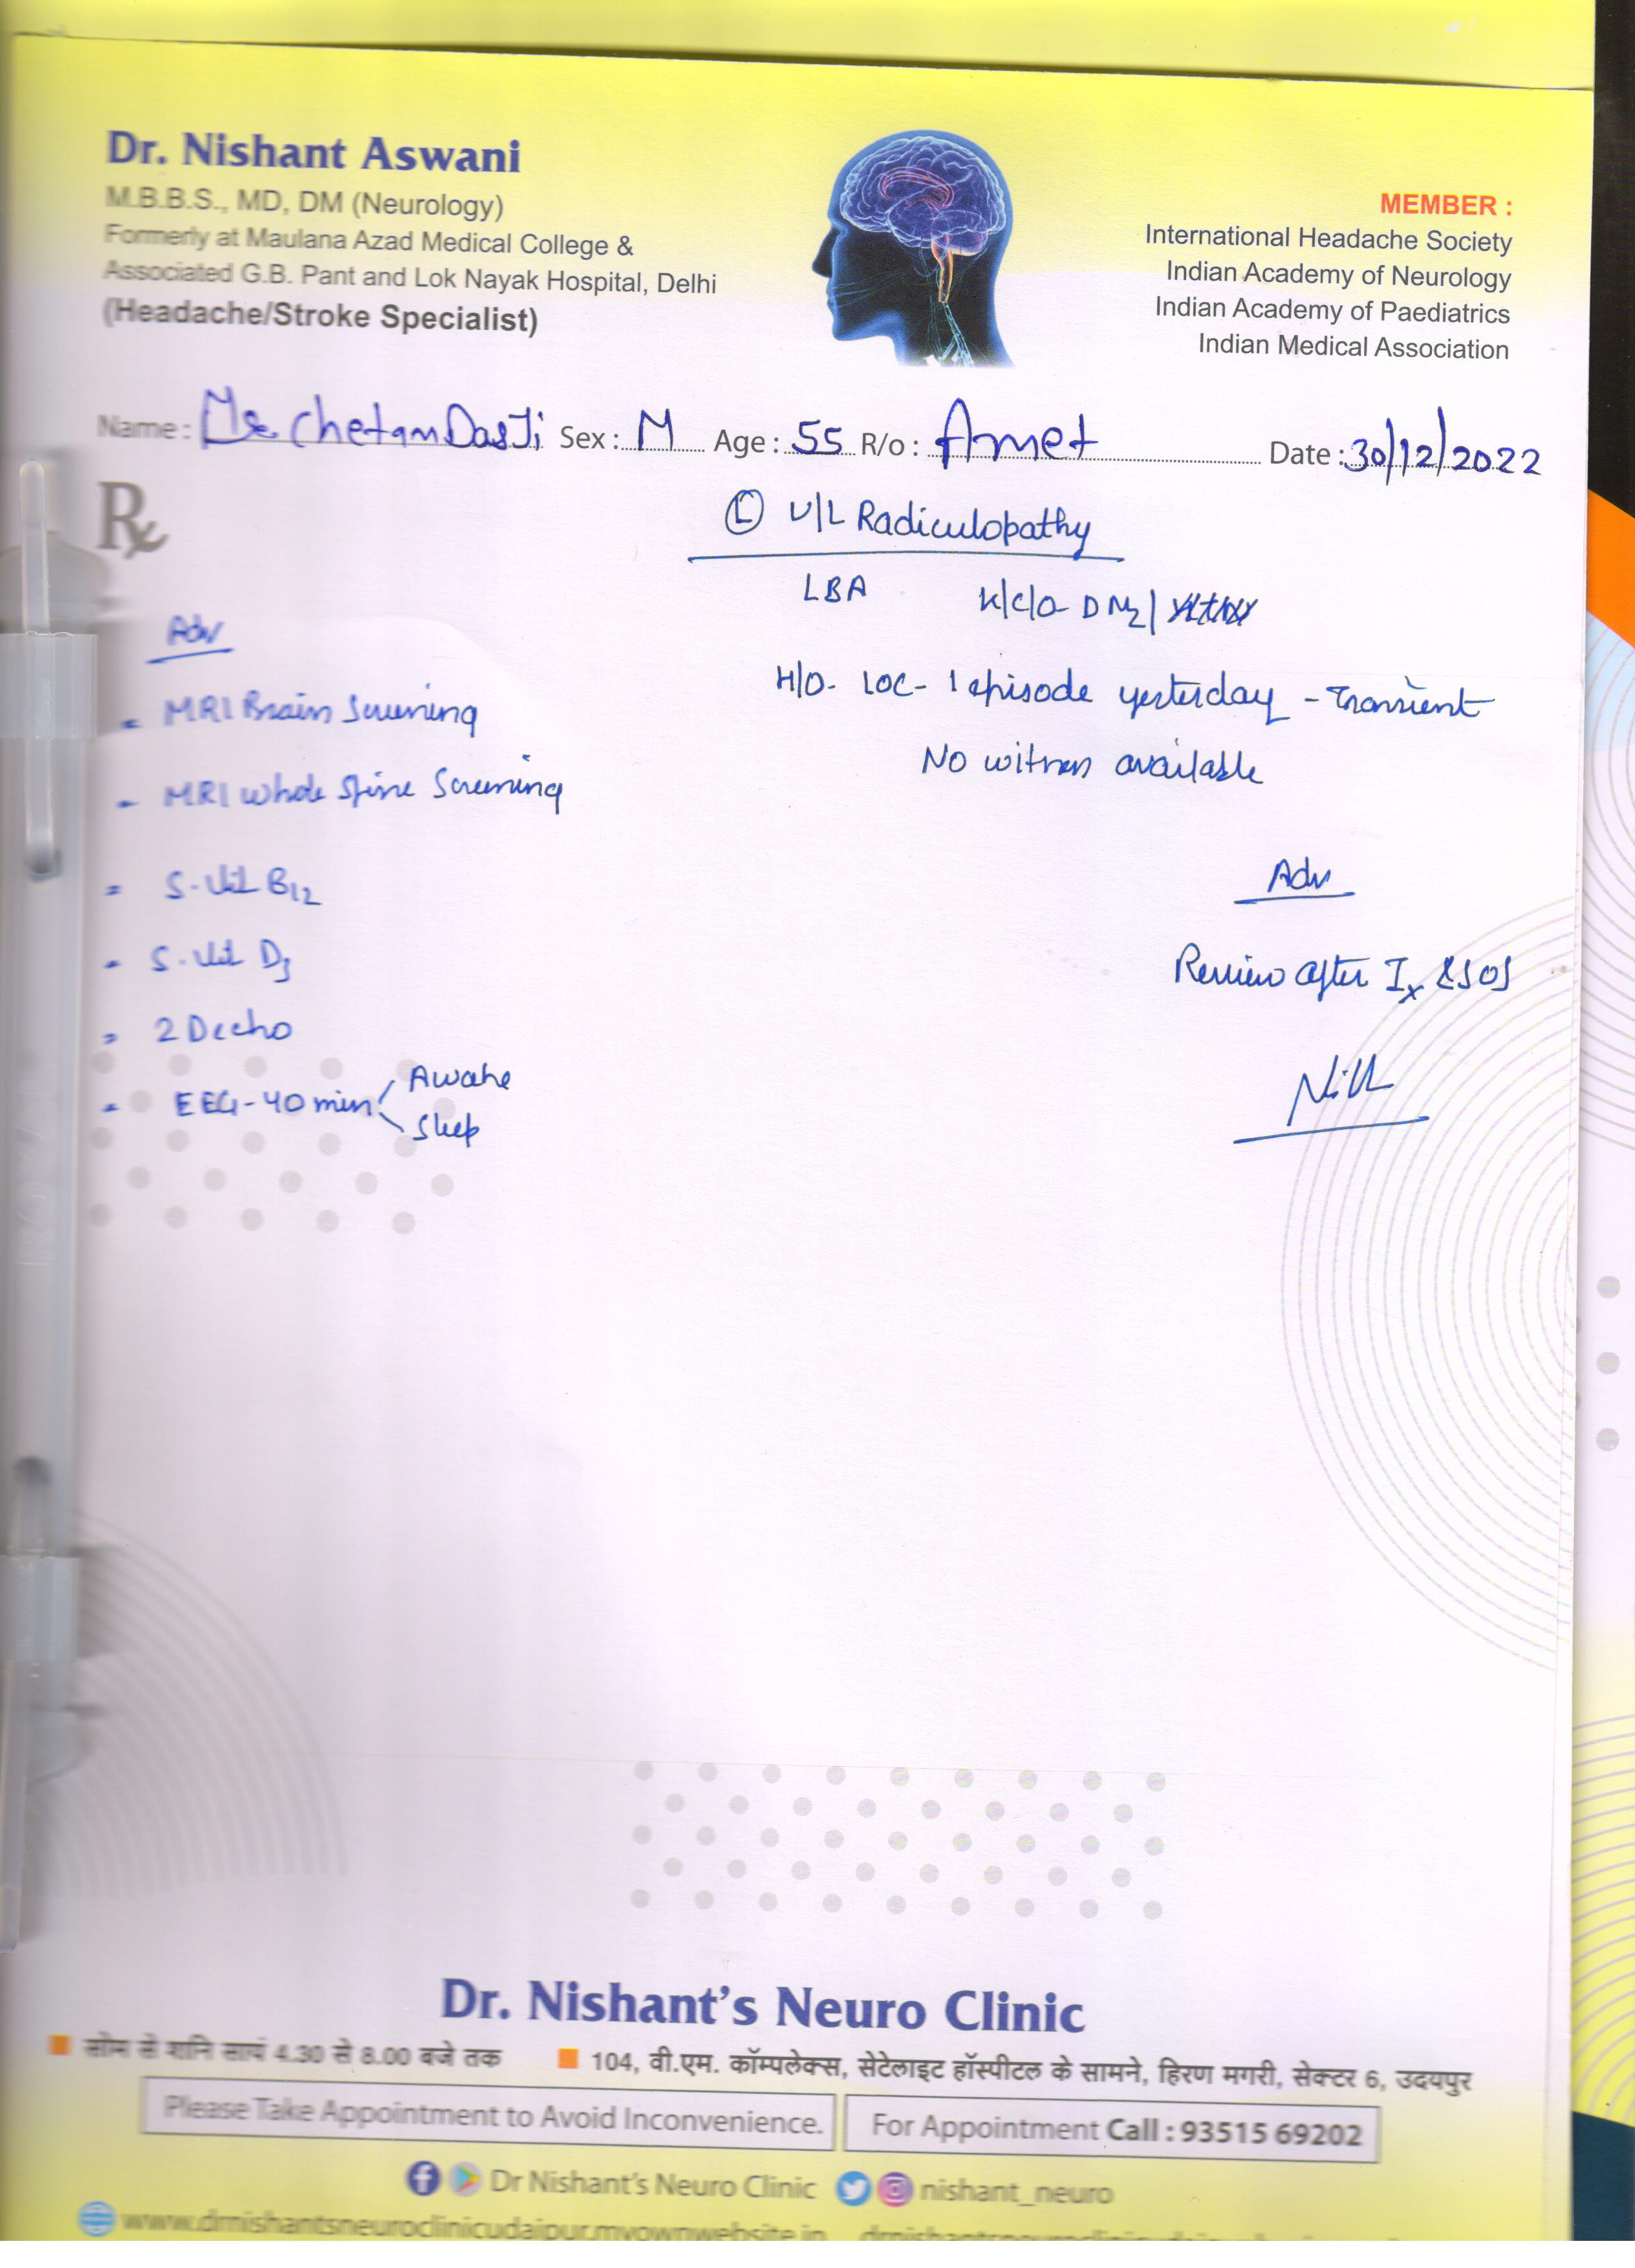 Dr. Nishant Aswani
M.B.B.S., MD, DM (Neurology)
Formerly at Maulana Azad Medical College &
Associated G.B. Pant and Lok Nayak Hospital, Delhi
(Headache/Stroke Specialist)
MEMBER :
International Headache Society
Indian Academy of Neurology
Indian Academy of Paediatrics
Indian Medical Association
Name : Mr Chetan Das Ji Sex : M Age : 55 R/o : Amet Date : 30/12/2022
Rx
Ⓛ U/L Radiculopathy
LBA K/C/O DM2/
H/O- LOC- 1 episode yesterday - Transient
No witness available
Adv
- MRI Brain Screening
- MRI Whole Spine Screening
- S. Vit B12
- S. Vit D3
- 2D echo
- EEG - 40 min Awake
Sleep
Adv
Review after Ix & SOS
Dr. Nishant's Neuro Clinic
सोम से शनि सायं 4.30 से 8.00 बजे तक
104, वी.एम. कॉम्पलेक्स, सेटेलाइट हॉस्पीटल के सामने, हिरण मगरी, सेक्टर 6, उदयपुर
Please Take Appointment to Avoid Inconvenience.
For Appointment Call : 93515 69202
Dr Nishant's Neuro Clinic nishant_neuro
www.drnishantsneuroclinicudaipur.myownwebsite.in